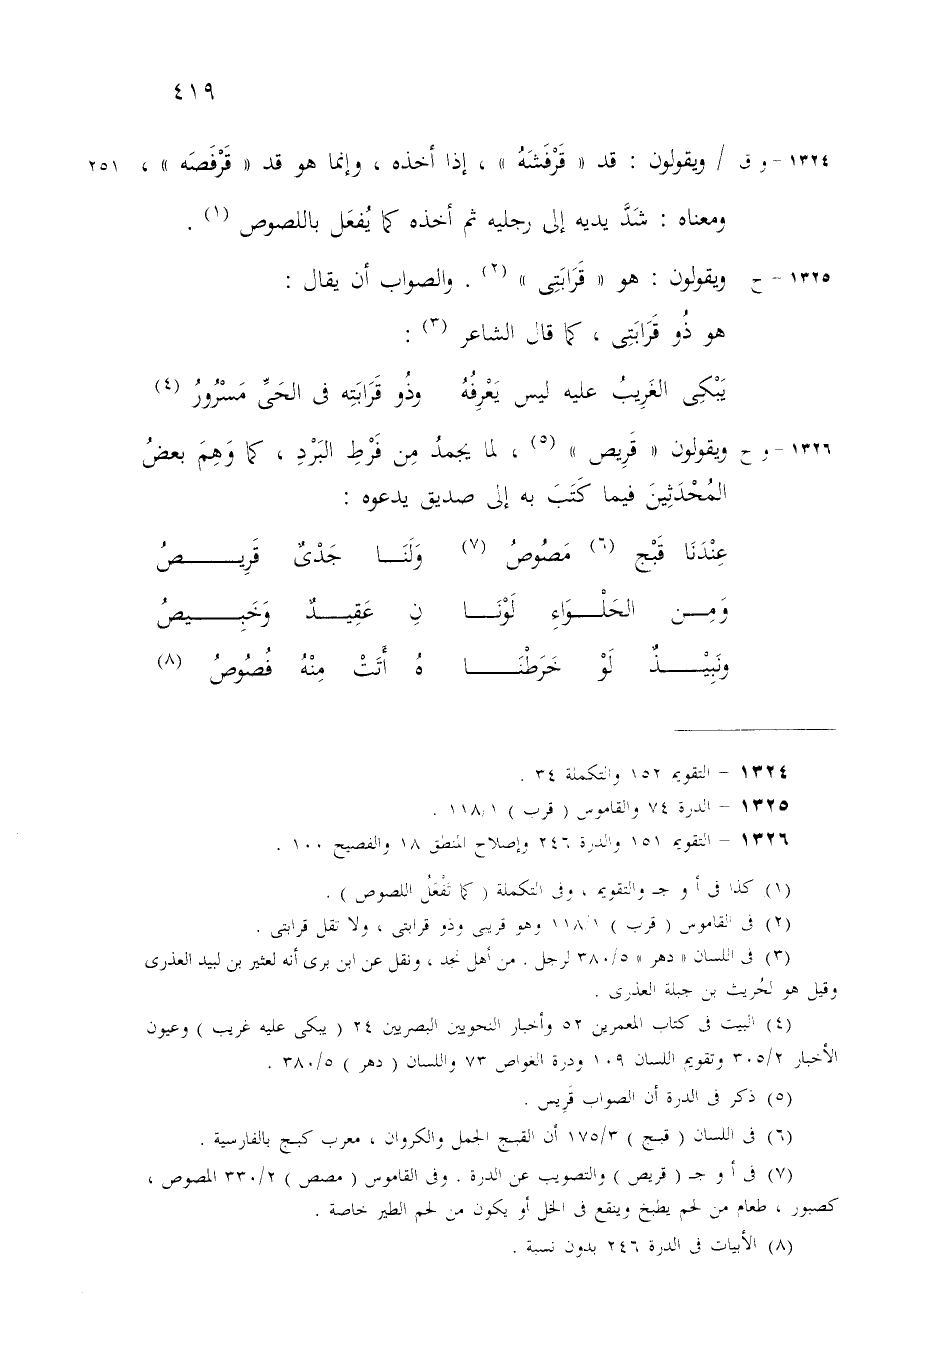 ٤١٩
١٣٢٤ - و ق / ويقولون : قد « قَرْفَشَهُ » ، إذا أخذه ، وإنما هو قد « قَرْفَصَه » ، ٢٥١
ومعناه : شَدَّ يديه إلى رجليه ثم أخذه كما يُفعَل باللصوص (١) .
١٣٢٥ - ح ويقولون : هو « قَرَابَتِى » (٢) . والصواب أن يقال :
هو ذُو قَرَابَتِى ، كما قال الشاعر (٣) :
يَبْكِى الغَرِيبُ عليه ليس يَعْرِفُهُ وذُو قَرَابَتِه فى الحَىِّ مَسْرُورُ (٤)
١٣٢٦ - و ح ويقولون « قَرِيص » (٥) ، لما يجمدُ مِن فَرْطِ البَرْدِ ، كما وَهِمَ بعضُ
المُحْدَثِينَ فيما كَتَبَ به إلى صديق يدعوه :
عِنْدَنَا قَبْج (٦) مَصُوصُ (٧) وَلَنَــا جَدْىٌ قَرِيــصُ
وَمِــن الحَلْــوَاءِ لَوْنَــا نِ عَقِيــدٌ وَخَبِــيصُ
ونَبِيْــذٌ لَوْ خَرَطْنَــا هُ أَتَتْ مِنْهُ فُصُوصُ (٨)
١٣٢٤ - التقويم ١٥٢ والتكملة ٣٤ .
١٣٢٥ - الدرة ٧٤ والقاموس ( قرب ) ١١٨/١ .
١٣٢٦ - التقويم ١٥١ والدرة ٢٤٦ وإصلاح المنطق ١٨ والفصيح ١٠٠ .
(١) كذا فى أ و جـ والتقويم ، وفى التكملة ( كما تَفْعَلُ اللصوص ) .
(٢) فى القاموس ( قرب ) ١١٨/١ وهو قريبى وذو قرابتى ، ولا تقل قرابتى .
(٣) فى اللسان « دهر » ٣٨٠/٥ لرجل . من أهل نجد ، ونقل عن ابن برى أنه لعثير بن لبيد العذرى
وقيل هو لحُريث بن جبلة العذرى .
(٤) البيت فى كتاب المعمرين ٥٢ وأخبار النحويين البصريين ٢٤ ( يبكى عليه غريب ) وعيون
الأخبار ٣٠٥/٢ وتقويم اللسان ١٠٩ ودرة الغواص ٧٣ واللسان ( دهر ) ٣٨٠/٥ .
(٥) ذكر فى الدرة أن الصواب قَرِيس .
(٦) فى اللسان ( قبج ) ١٧٥/٣ أن القبج الجمل والكروان ، معرب كبج بالفارسية .
(٧) فى أ و جـ ( قريص ) والتصويب عن الدرة . وفى القاموس ( مصص ) ٣٣٠/٢ المصوص ،
كصبور ، طعام من لحم يطبخ وينقع فى الخل أو يكون من لحم الطير خاصة .
(٨) الأبيات فى الدرة ٢٤٦ بدون نسبة .